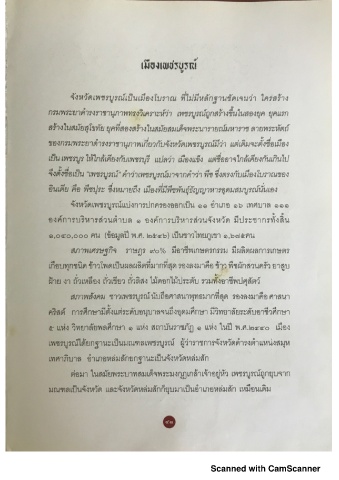 เมืองเพชรบูรณ์
จังหวัดเพชรบูรณ์เป็นเมืองโบราณ ที่ไม่มีหลักฐานชัดเจนว่า ใครสร้าง
กรมพระยาดำรงราชานุภาพทรงวิเคราะห์ว่า เพชรบูรณ์ถูกสร้างขึ้นในสองยุค ยุคแรก
สร้างในสมัยสุโขทัย ยุคที่สองสร้างในสมัยสมเด็จพระนารายณ์มหาราช ลายพระหัตถ์
ของกรมพระยาดำรงราชานุภาพเกี่ยวกับจังหวัดเพชรบูรณ์มีว่า แต่เดิมจะตั้งชื่อเมือง
เป็น เพชรบูร ให้ใกล้เคียงกับเพชรบุรี แปลว่า เมืองแข็ง แต่ชื่ออาจใกล้เคียงกันเกินไป
จึงตั้งชื่อเป็น "เพชรบูรณ์" คำว่าเพชรบูรณ์มาจากคำว่า พืช ซึ่งตรงกับเมืองโบราณของ
อินเดีย คือ พืชปุระ ซึ่งหมายถึง เมืองที่มีพืชพันธุ์ธัญญาหารอุดมสมบูรณ์นั่นเอง
จังหวัดเพชรบูรณ์แบ่งการปกครองออกเป็น ๑๑ อำเภอ ๑๖ เทศบาล ๑๑๑
องค์การบริหารส่วนตำบล ๑ องค์การบริหารส่วนจังหวัด มีประชากรทั้งสิ้น
๑,๐๔๐,๐๐๐ คน (ข้อมูลปี พ.ศ. ๒๕๔๒) เป็นชาวไทยภูเขา คน
สภาพเศรษฐกิจ ราษฎร ๙๐% มีอาชีพเกษตรกรรม มีผลิตผลการเกษตร
เกือบทุกชนิด ข้าวโพดเป็นผลผลิตที่มากที่สุด รองลงมาคือ ข้าว พืชผักสวนครัว ยาสูบ
ฝ้าย งา ถั่วเหลือง ถั่วเขียว ถั่วลิสง ไม้ดอกไม้ประดับ รวมทั้งอาชีพปศุสัตว์
สภาพสังคม ชาวเพชรบูรณ์นับถือศาสนาพุทธมากที่สุด รองลงมาคือศาสนา
คริสต์ การศึกษามีตั้งแต่ระดับอนุบาลจนถึงอุดมศึกษา มีวิทยาลัยระดับอาชีวศึกษา
๕ แห่ง วิทยาลัยพลศึกษา ๑ แห่ง สถาบันราชภัฏ ๑ แห่ง ในปี พ.ศ.๒๔๔๐ เมือง
เพชรบูรณ์ได้ยกฐานะเป็นมณฑลเพชรบูรณ์ ผู้ว่าราชการจังหวัดดำรงตำแหน่งสมุห
เทศาภิบาล อำเภอหล่มสักยกฐานะเป็นจังหวัดหล่มสัก
ต่อมา ในสมัยพระบาทสมเด็จพระมงกุฎเกล้าเจ้าอยู่หัว เพชรบูรณ์ถูกยุบจาก
มณฑลเป็นจังหวัด และจังหวัดหล่มสักก็ยุบมาเป็นอำเภอหล่มสัก เหมือนเดิม
Scanned with CamScanner